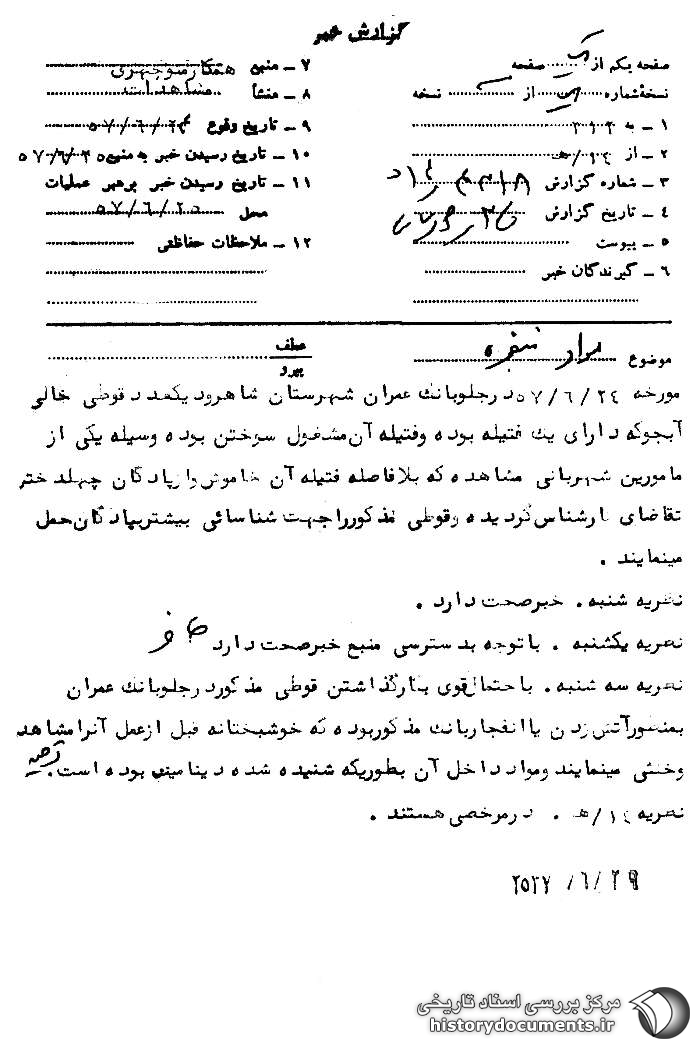 گزارش خبر
صفحه یکم از یک صفحه
نسخهٔ شماره از نسخه
۱ ـ به ۳۱۲
۲ ـ از ۱۴/ه‍
۳ ـ شماره گزارش
۴ ـ تاریخ گزارش
۵ ـ پیوست
۶ ـ گیرندگان خبر
۷ ـ منبع همکار منوچهری
۸ ـ منشأ مشاهدات
۹ ـ تاریخ وقوع ۵۷/۶/۲۴
۱۰ ـ تاریخ رسیدن خبر به منبع ۵۷/۶/۲۵
۱۱ ـ تاریخ رسیدن خبر برهبر عملیات
محل ۵۷/۶/۲۵
۱۲ ـ ملاحظات حفاظتی
موضوع مواد منفجره
عطف
پیرو
مورخه ۵۷/۶/۲۴ در جلو بانک عمران شهرستان شاهرود یکعدد قوطی خالی
آبجو که دارای یک فتیله بوده و فتیله آن مشغول سوختن بوده وسیله یکی از
مامورین شهربانی مشاهده که بلافاصله فتیله آن خاموش واز پادگان چهلدختر
تقاضای کارشناس گردیده و قوطی مذکور را جهت شناسائی بیشتر بپادگان حمل
مینمایند .
نظریه شنبه . خبر صحت دارد .
نظریه یکشنبه . با توجه بدسترسی منبع خبر صحت دارد
نظریه سه شنبه . باحتمال قوی بکار گذاشتن قوطی مذکور در جلو بانک عمران
بمنظور آتش زدن یا انفجار بانک مذکور بوده که خوشبختانه قبل از عمل آنرا مشاهد
وخنثی مینمایند و مواد داخل آن بطوریکه شنیده شده دینامیت بوده است .
نظریه ۱۴/ه‍ . در مرخصی هستند .
۲۵۳۷/۶/۲۹
مرکز بررسی اسناد تاریخی
historydocuments.ir